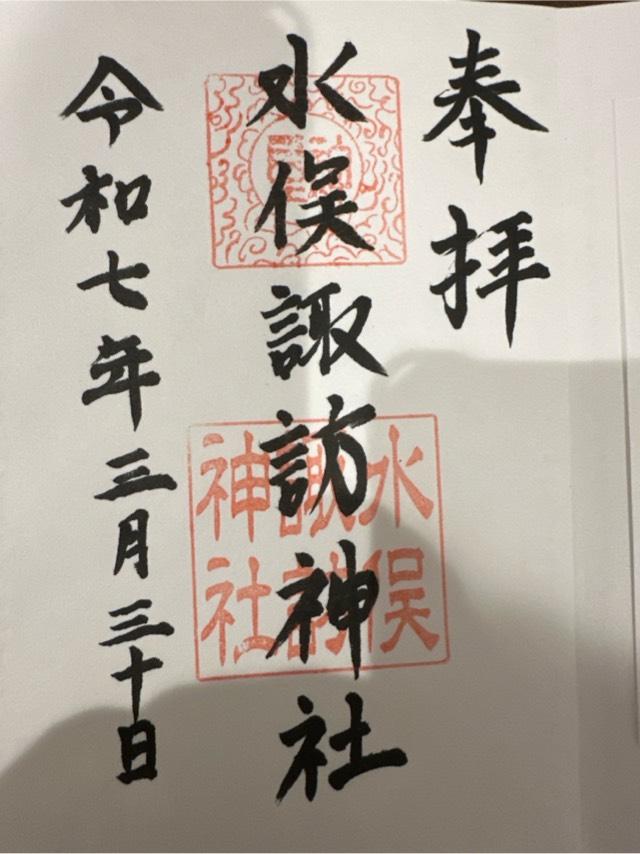 奉拝
水俣諏訪神社
令和七年三月三十日
水俣
諏訪
神社